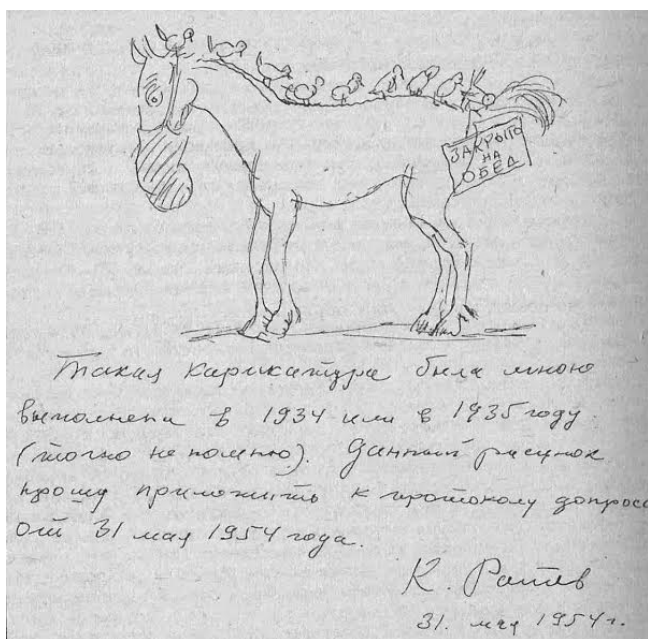 ЗАКРЫТО
НА
ОБЕД
Такая карикатура была мною
выполнена в 1934 или в 1935 году
(точно не помню). Данный рисунок
прошу приложить к протоколу допроса
от 31 мая 1954 года.
К. Ротов
31. мая 1954 г.